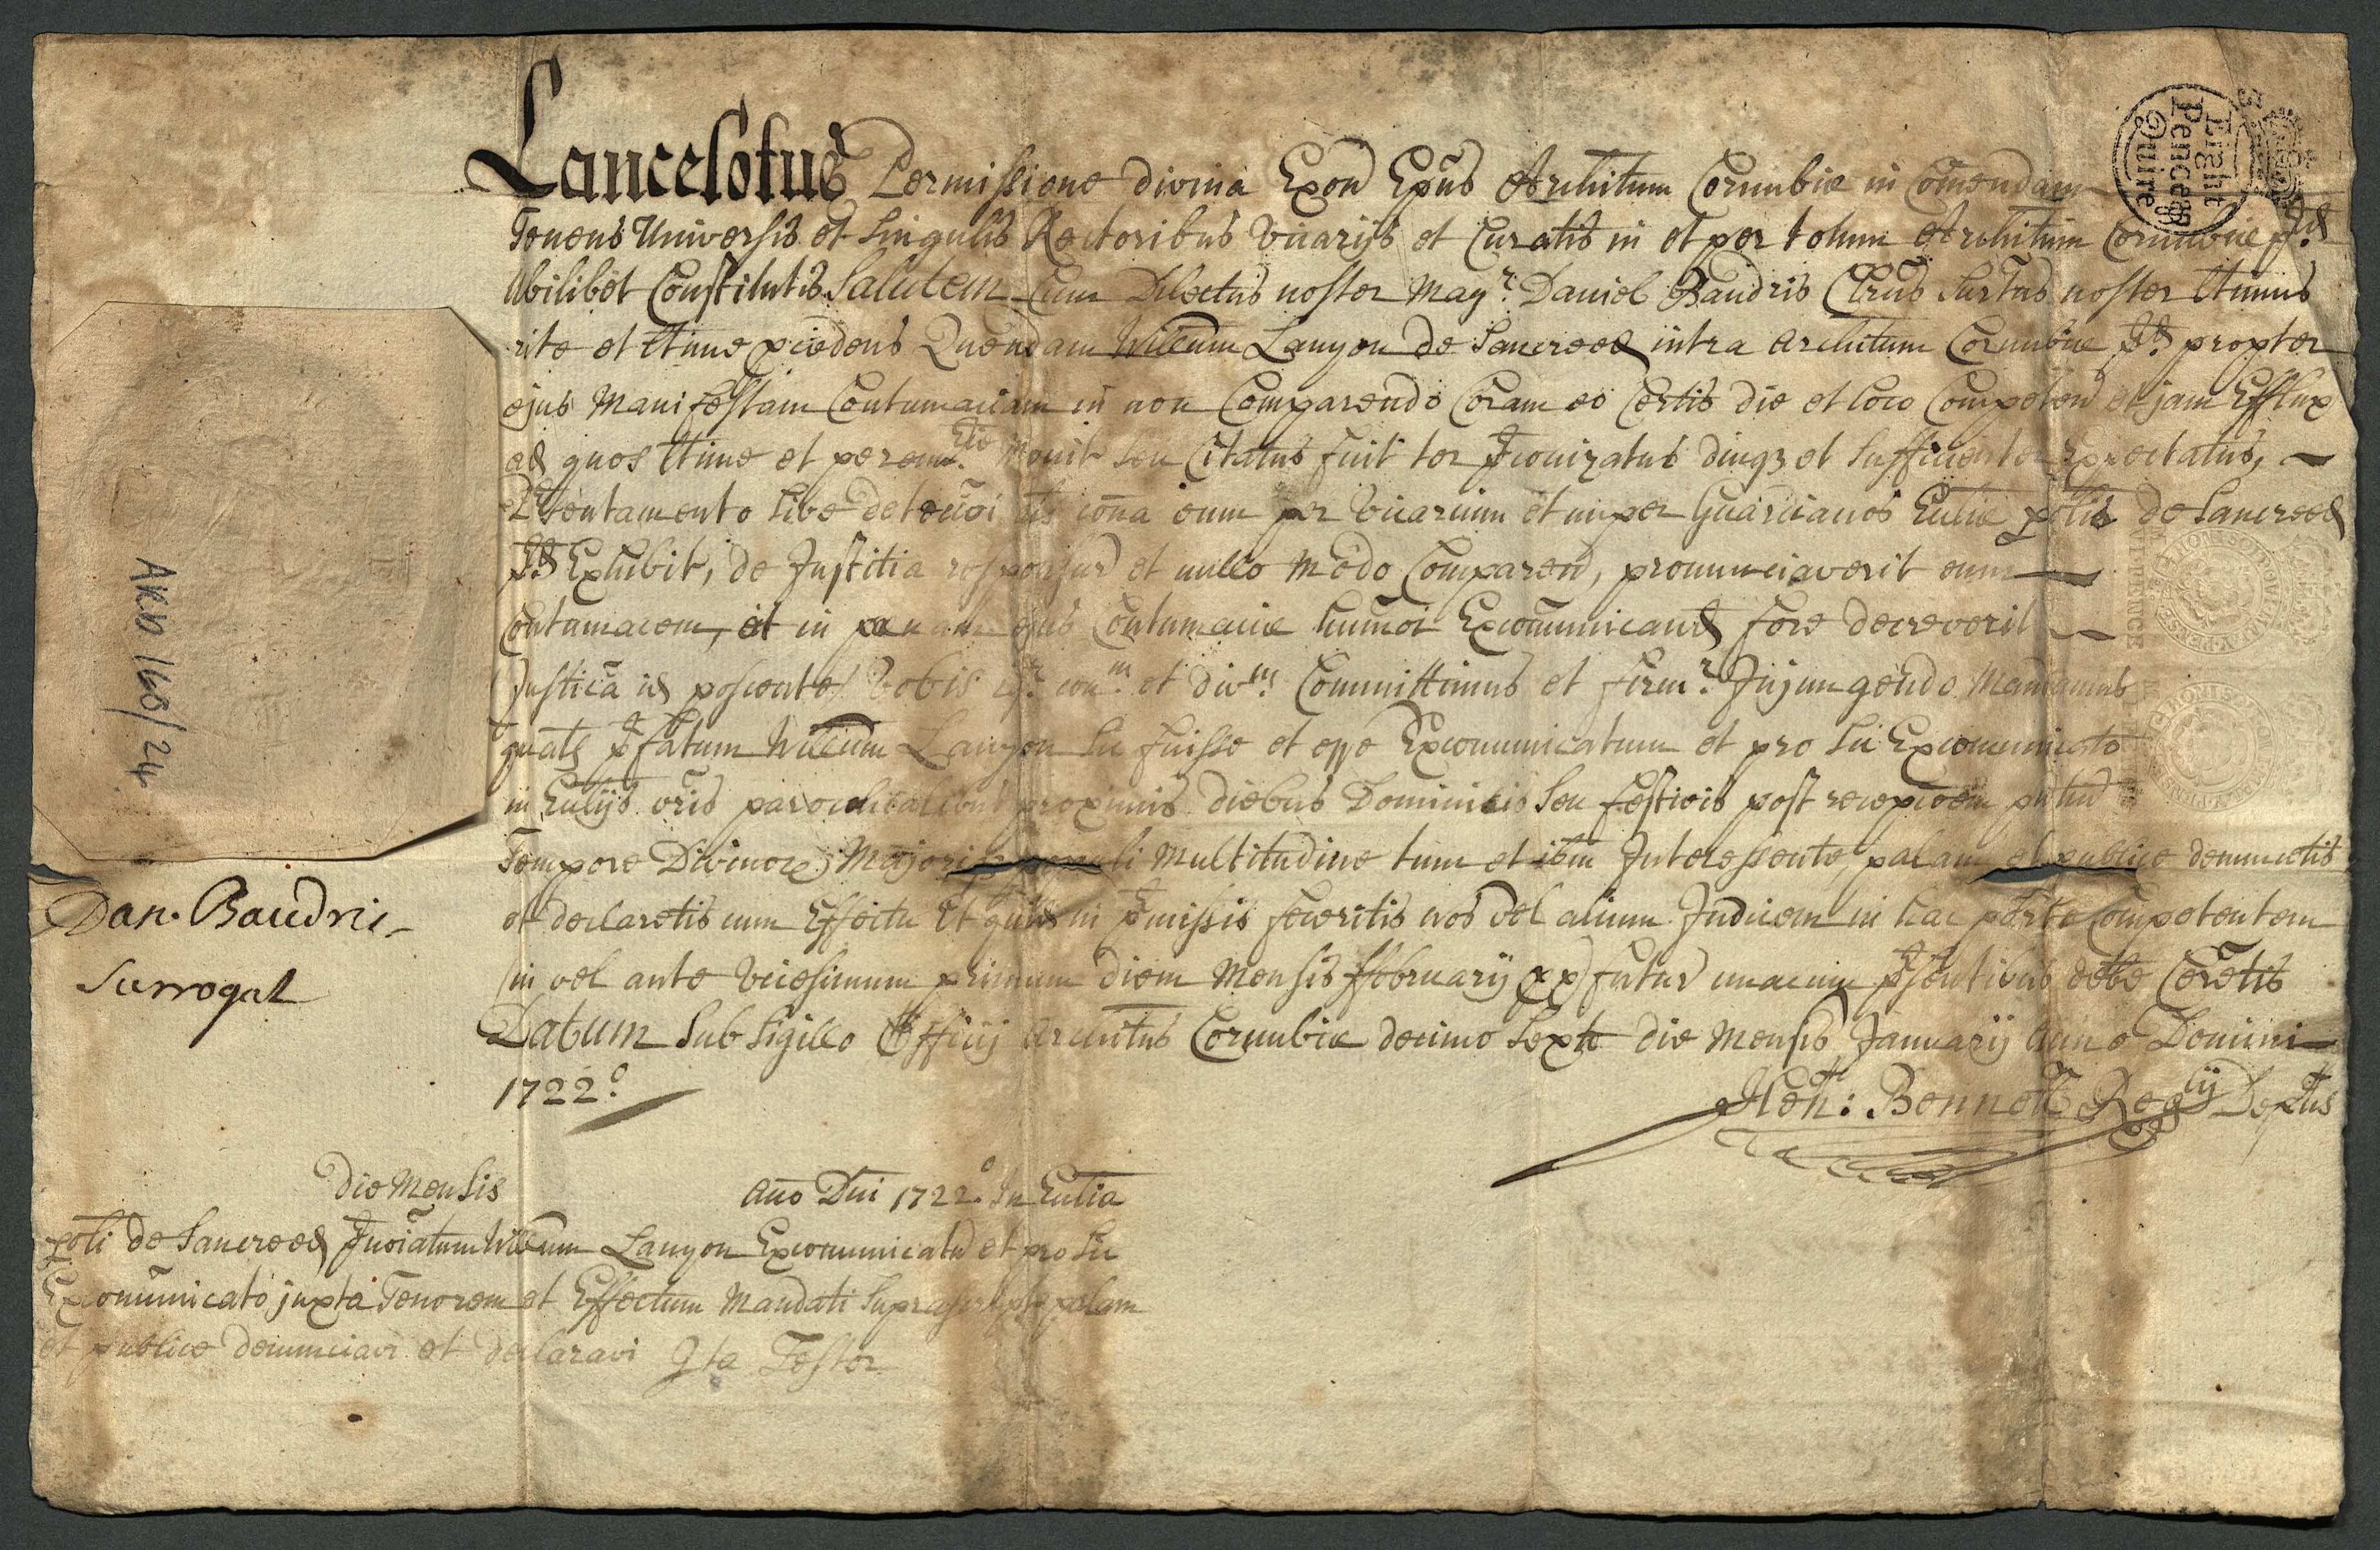 Lancelotus Permissione divina Exon Epũs Architum Cornubiæ in Com̃endam
Tenens Universis et Singulis Rectoribus Vicarijs et Curatis in et per totum Architum Cornubiæ p.d
Ubilibet Constitutis Salutem Cum Dilectus noster Mag.r Daniel Baudris Clr̃us Surr̃tus noster ltimus
rite et ltime p̱cedens Quendam Willum Lanyon de Sancreed intra Architum Cornubiæ p.d propter
ejus Manifestam Contumaciam in non Comparendo Coram eo Certis die et loco Competeñ et jam Efflux
ad quos ltime et perem.rie Monit seu Citatus fuit ter p̃conizatus diuqȝ et Sufficienter Expectatus,
P̃sentamento sive detecc̃oi cõna eum per Vicarium et nuper Guardianos Ecclie p̱olis de Sancreed
p.d Exhibit, de Justitia responsur̃ et nullo Modo Comparen̄, pronunciaverit eum
Contumacem, et in pœnam ejus Contumaciæ hum̃oi Excom̃unicand fore decreverit
Justic̃a id poscente Vobis con.m et div.m Committimus et firm.r Injungendo Mandamus
quats p̃fatum Willum Lanyon Sic fuisse et esse Excommunicatum et pro Sic Excommunicato
in Ecclijs vr̃is parochialibus proximis diebus Dominicis Seu festivis post recepc̃oem p̃ntiu
Tempore Divinor; Majori populi Multitudine tum et ibm Interessente, palam et publice denuncietis
et declaretis cum Effectu Et quid in p̃missis feceritis nos vel alium Judicem in hac parte Competentem
in vel ante Vicesimum primum diem Mensis ffebruarij px̱ futur̃ unacum p̃sentibus debe Cer̃etis
Datum Sub Sigillo Officij Architus Cornubiæ decimo Sexto die Mensis Januarij Anno Domini
1722.o
Hen: Bennett Reg.rij Deptus
Dan. Baudri
Surrogat
Die Mensis Año Dñi 1722.o In Ecclia
p̱oli de Sancreed p̃noiatum Willum Lanyon Excommunicatu et pro Sic
Excom̃unicato juxta Tenorem et Effectum Mandati Suprascript palam
et publice denunciavi et declaravi Ita Testor
Eight
Pence ℔
Quire
ARD 168/24